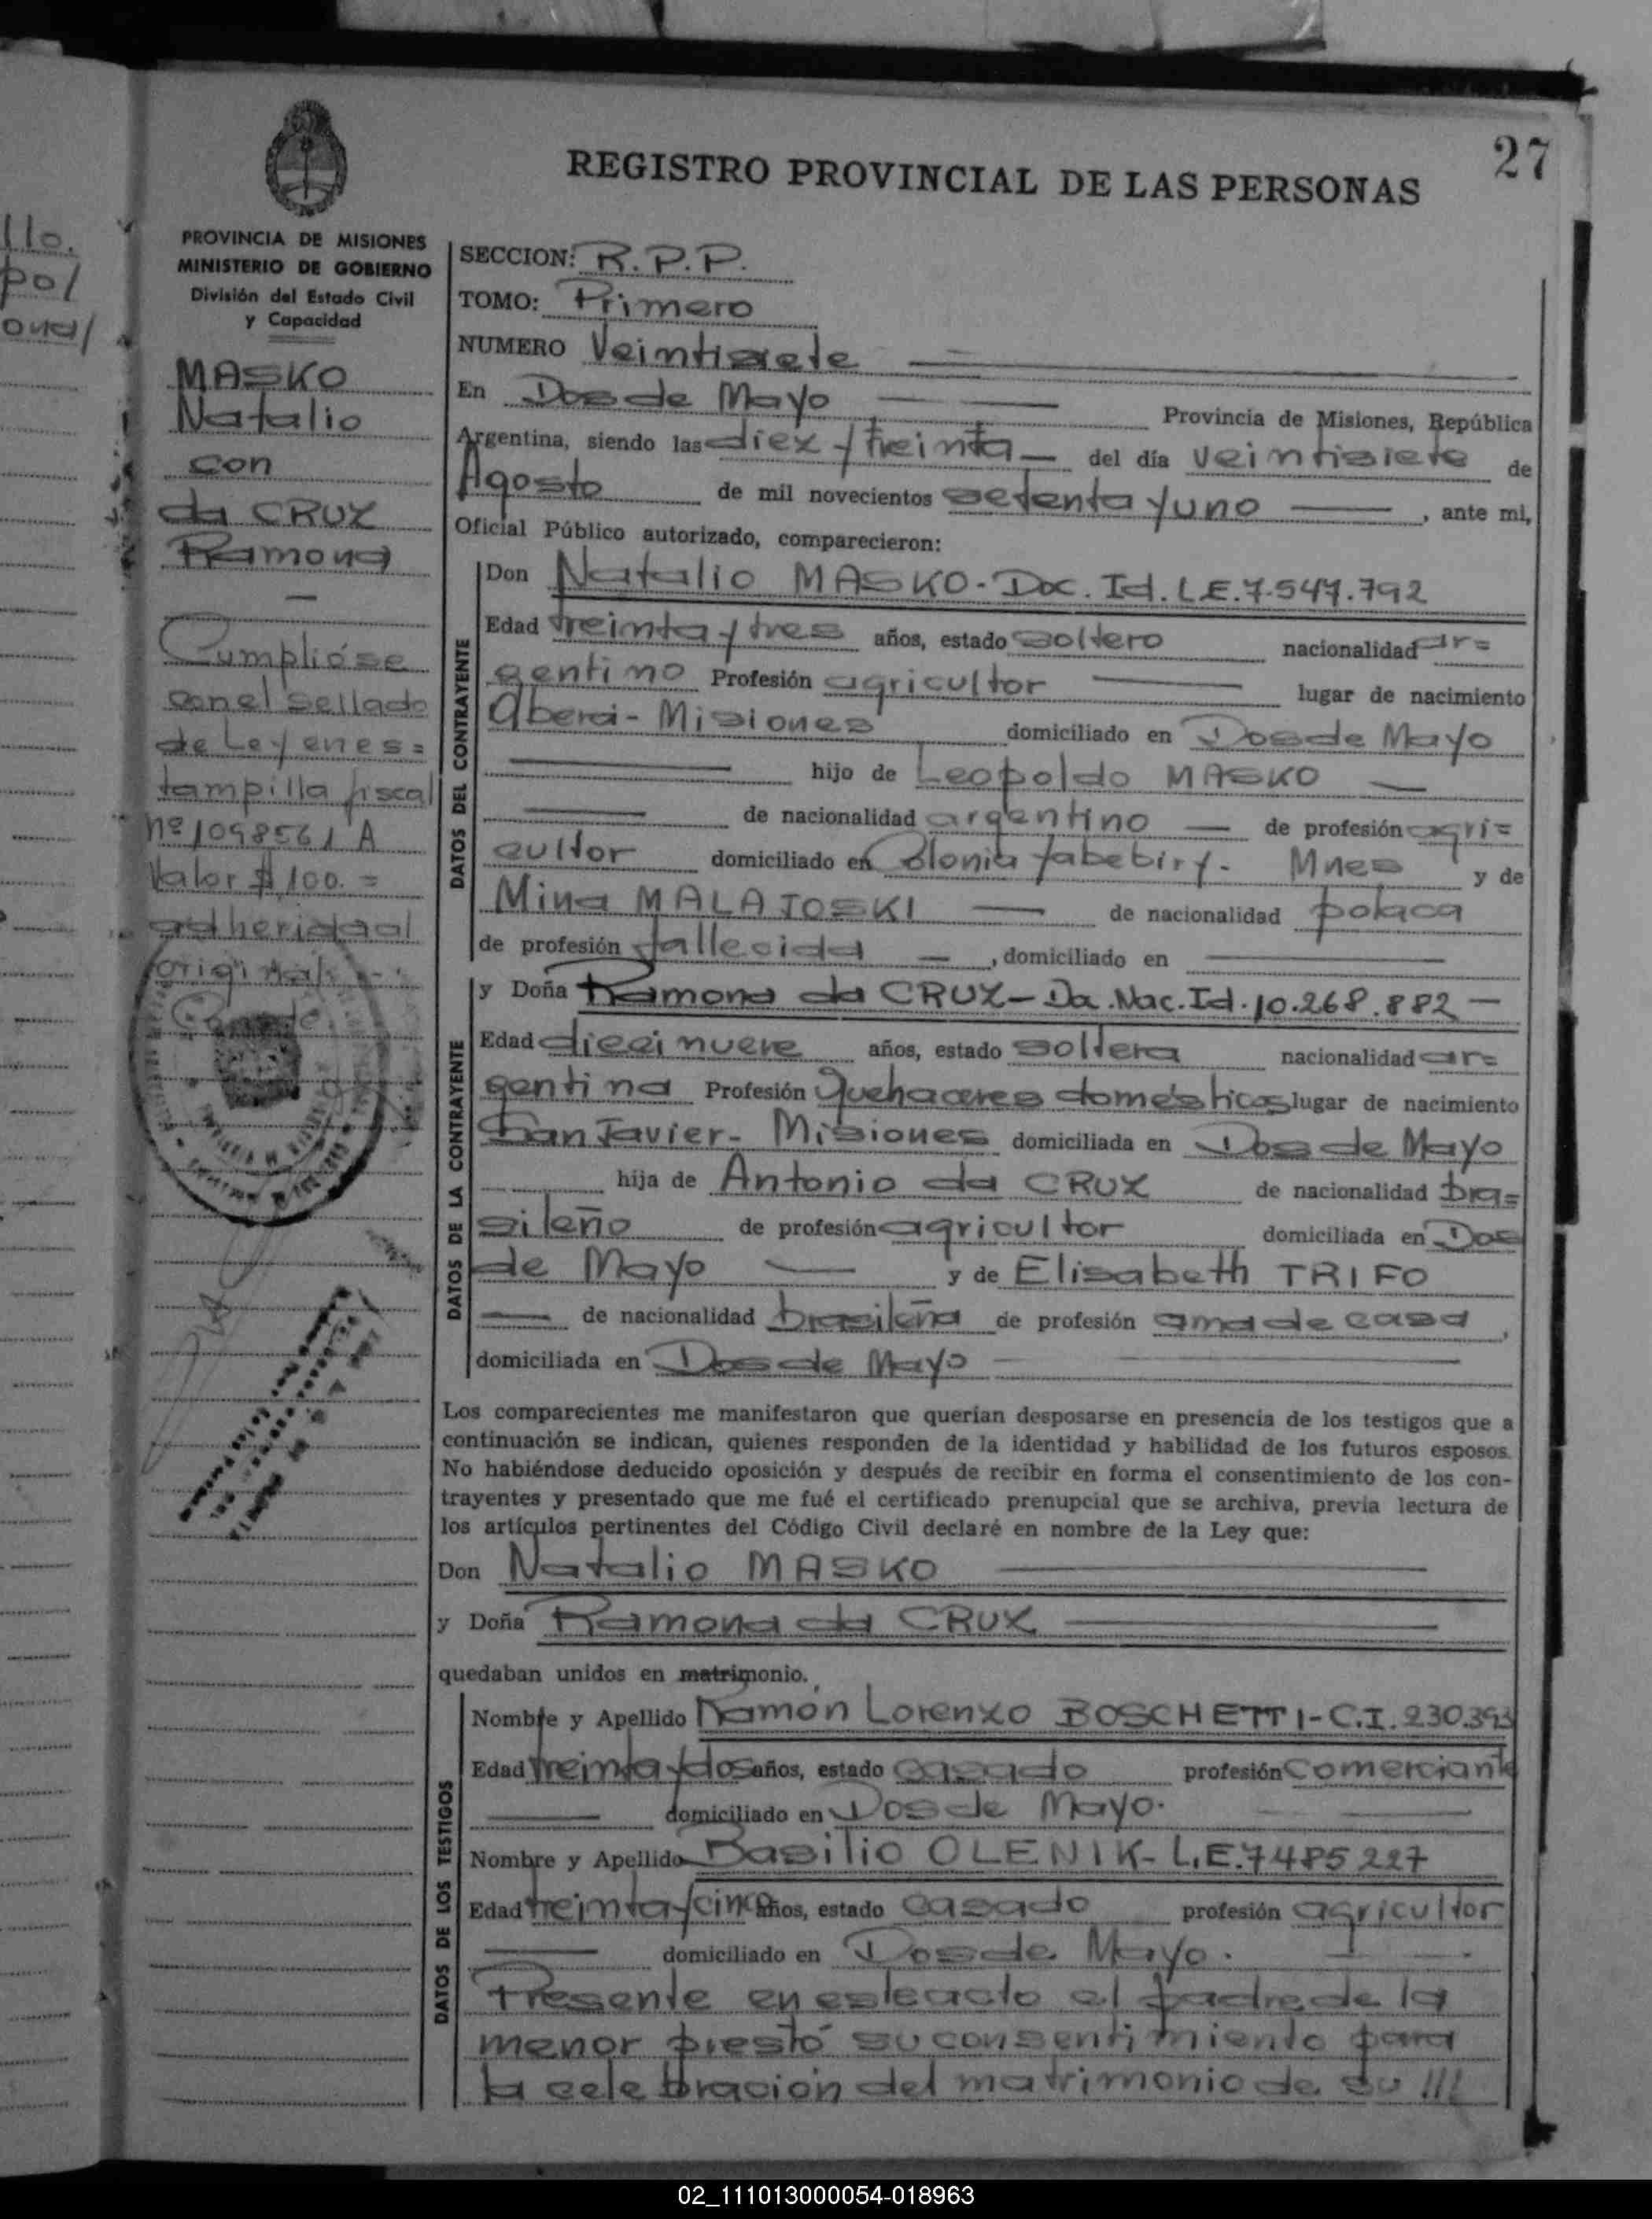 27
REGISTRO PROVINCIAL DE LAS PERSONAS
llo.
PROVINCIA DE MISIONES
MINISTERIO DE GOBIERNO
División del Estado Civil
y Capacidad
MASKO
Natalio
con
da CRUZ
Ramona
Cumplióse
con el sellado
de Ley en es=
tampilla fiscal
nº 1098561 A
Valor $ 100. =
adherida al
original.
SECCION: R.P.P.
TOMO: Primero
NUMERO Veintisiete
En Dos de Mayo Provincia de Misiones, República
Argentina, siendo las diez y treinta del día veintisiete de
Agosto de mil novecientos setenta y uno, ante mi,
Oficial Público autorizado, comparecieron:
DATOS DEL CONTRAYENTE
Don Natalio MASKO - Doc. Id. L.E. 7.547.792
Edad treinta y tres años, estado soltero nacionalidad ar=
gentino Profesión agricultor lugar de nacimiento
Oberá - Misiones domiciliado en Dos de Mayo
hijo de Leopoldo MASKO
de nacionalidad argentino de profesión agri=
cultor domiciliado en Colonia Yabebiry - Mnes y de
Mina MALAJOSKI de nacionalidad polaca
de profesión fallecida, domiciliado en
DATOS DE LA CONTRAYENTE
y Doña Ramona da CRUZ - Do. Nac. Id. 10.268.882 -
Edad diecinueve años, estado soltera nacionalidad ar=
gentina Profesión Quehaceres domésticos lugar de nacimiento
San Javier - Misiones domiciliada en Dos de Mayo
hija de Antonio da CRUZ de nacionalidad bra=
sileño de profesión agricultor domiciliada en Dos
de Mayo y de Elisabeth TRIFO
de nacionalidad brasileña de profesión ama de casa,
domiciliada en Dos de Mayo
Los comparecientes me manifestaron que querían desposarse en presencia de los testigos que a
continuación se indican, quienes responden de la identidad y habilidad de los futuros esposos.
No habiéndose deducido oposición y después de recibir en forma el consentimiento de los con-
trayentes y presentado que me fué el certificado prenupcial que se archiva, previa lectura de
los artículos pertinentes del Código Civil declaré en nombre de la Ley que:
Don Natalio MASKO
y Doña Ramona da CRUZ
quedaban unidos en matrimonio.
DATOS DE LOS TESTIGOS
Nombre y Apellido Ramón Lorenzo BOSCHETTI - C.I. 230.393
Edad treinta y dos años, estado casado profesión comerciante
domiciliado en Dos de Mayo.
Nombre y Apellido Basilio OLENIK - L.E. 7485227
Edad treinta y cinco años, estado casado profesión agricultor
domiciliado en Dos de Mayo.
Presente en este acto el padre de la
menor prestó su consentimiento para
la celebración del matrimonio de su ///
02_111013000054-018963